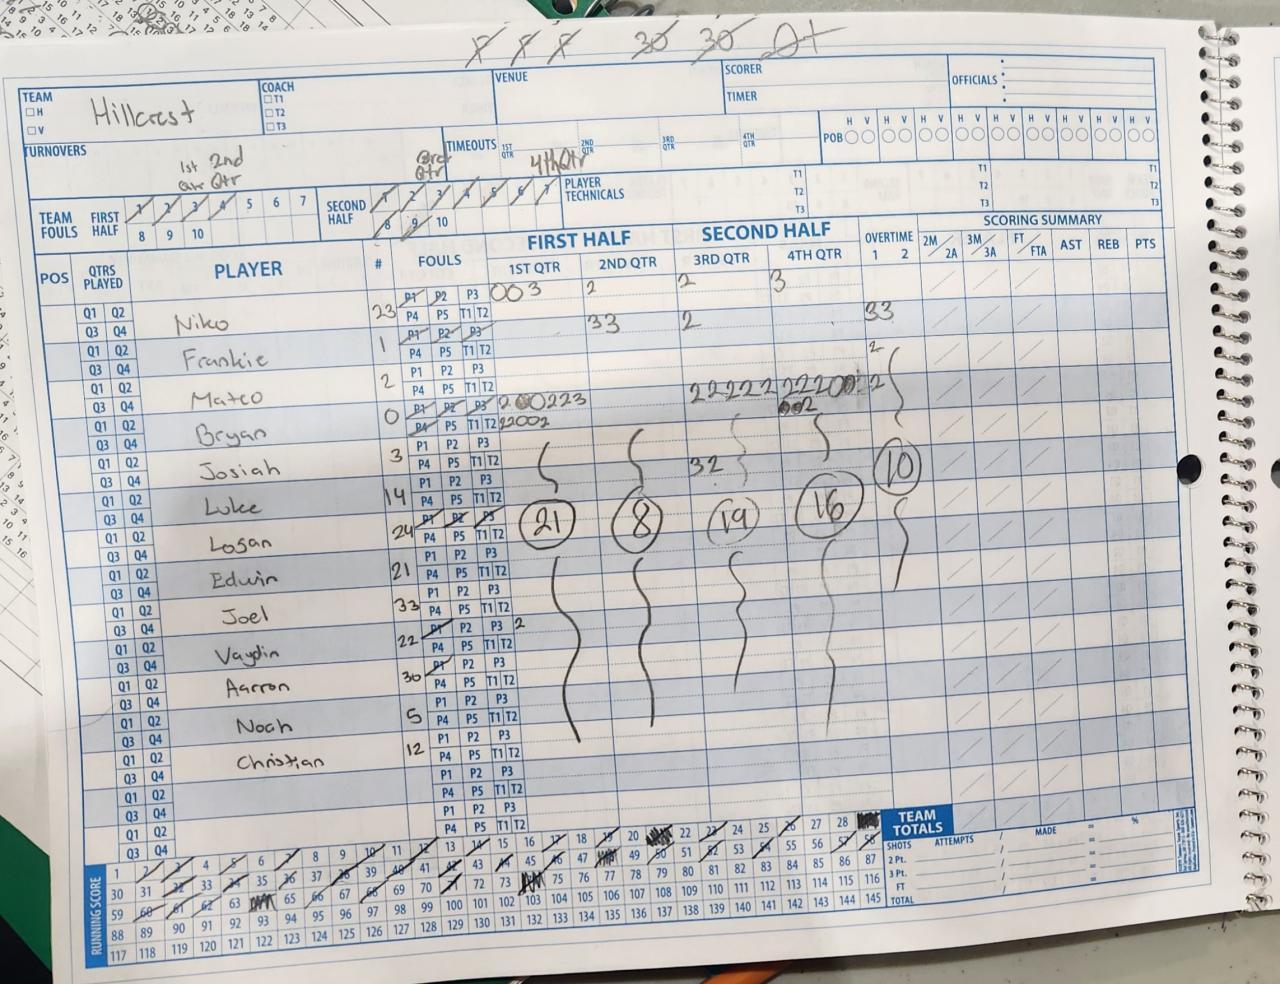 30 30 Ot
TEAM Hillcrest
H
V
COACH
T1
T2
T3
VENUE
SCORER
TIMER
OFFICIALS
TURNOVERS
1st Qtr 2nd Qtr
3rd Qtr
4th Qtr
TIMEOUTS 1ST QTR 2ND QTR 3RD QTR 4TH QTR
POB H V H V H V H V H V H V H V H V H V
TEAM FOULS FIRST HALF 1 2 3 4 5 6 7
8 9 10
SECOND HALF 1 2 3 4 5 6 7
8 9 10
PLAYER TECHNICALS T1 T1 T1
T2 T2 T2
T3 T3 T3
FIRST HALF SECOND HALF OVERTIME SCORING SUMMARY
POS QTRS PLAYED PLAYER # FOULS 1ST QTR 2ND QTR 3RD QTR 4TH QTR 1 2 2M 2A 3M 3A FT FTA AST REB PTS
Q1 Q2 Niko 23 P1 P2 P3 003 2 2 3
Q3 Q4 P4 P5 T1 T2
Q1 Q2 Frankie 1 P1 P2 P3 33 2 33
Q3 Q4 P4 P5 T1 T2
Q1 Q2 Mateo 2 P1 P2 P3 2
Q3 Q4 P4 P5 T1 T2
Q1 Q2 Bryan 0 P1 P2 P3 200223 22222 2
Q3 Q4 P4 P5 T1 T2 22002
Q1 Q2 Josiah 3 P1 P2 P3
Q3 Q4 P4 P5 T1 T2
Q1 Q2 Luke 14 P1 P2 P3 32
Q3 Q4 P4 P5 T1 T2
Q1 Q2 Logan 24 P1 P2 P3 21 8 19 16 10
Q3 Q4 P4 P5 T1 T2
Q1 Q2 Edwin 21 P1 P2 P3
Q3 Q4 P4 P5 T1 T2
Q1 Q2 Joel 33 P1 P2 P3
Q3 Q4 P4 P5 T1 T2
Q1 Q2 Vaydin 22 P1 P2 P3 2
Q3 Q4 P4 P5 T1 T2
Q1 Q2 Aarron 30 P1 P2 P3
Q3 Q4 P4 P5 T1 T2
Q1 Q2 Noah 5 P1 P2 P3
Q3 Q4 P4 P5 T1 T2
Q1 Q2 Christian 12 P1 P2 P3
Q3 Q4 P4 P5 T1 T2
Q1 Q2 P1 P2 P3
Q3 Q4 P4 P5 T1 T2
Q1 Q2 P1 P2 P3
Q3 Q4 P4 P5 T1 T2
RUNNING SCORE
1 2 3 4 5 6 7 8 9 10 11 12 13 14 15 16 17 18 19 20 22 23 24 25 26 27 28
30 31 32 33 34 35 36 37 38 39 40 41 42 43 44 45 46 47 49 50 51 52 53 54 55 56 57 58
59 60 61 62 63 65 66 67 68 69 70 71 72 73 75 76 77 78 79 80 81 82 83 84 85 86 87
88 89 90 91 92 93 94 95 96 97 98 99 100 101 102 103 104 105 106 107 108 109 110 111 112 113 114 115 116
117 118 119 120 121 122 123 124 125 126 127 128 129 130 131 132 133 134 135 136 137 138 139 140 141 142 143 144 145
TEAM TOTALS
SHOTS ATTEMPTS / MADE = %
2 Pt.
3 Pt.
FT
TOTAL